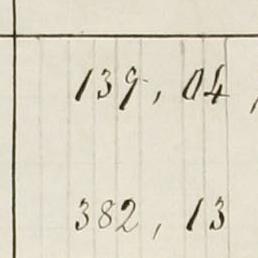 139, 04,
382, 13